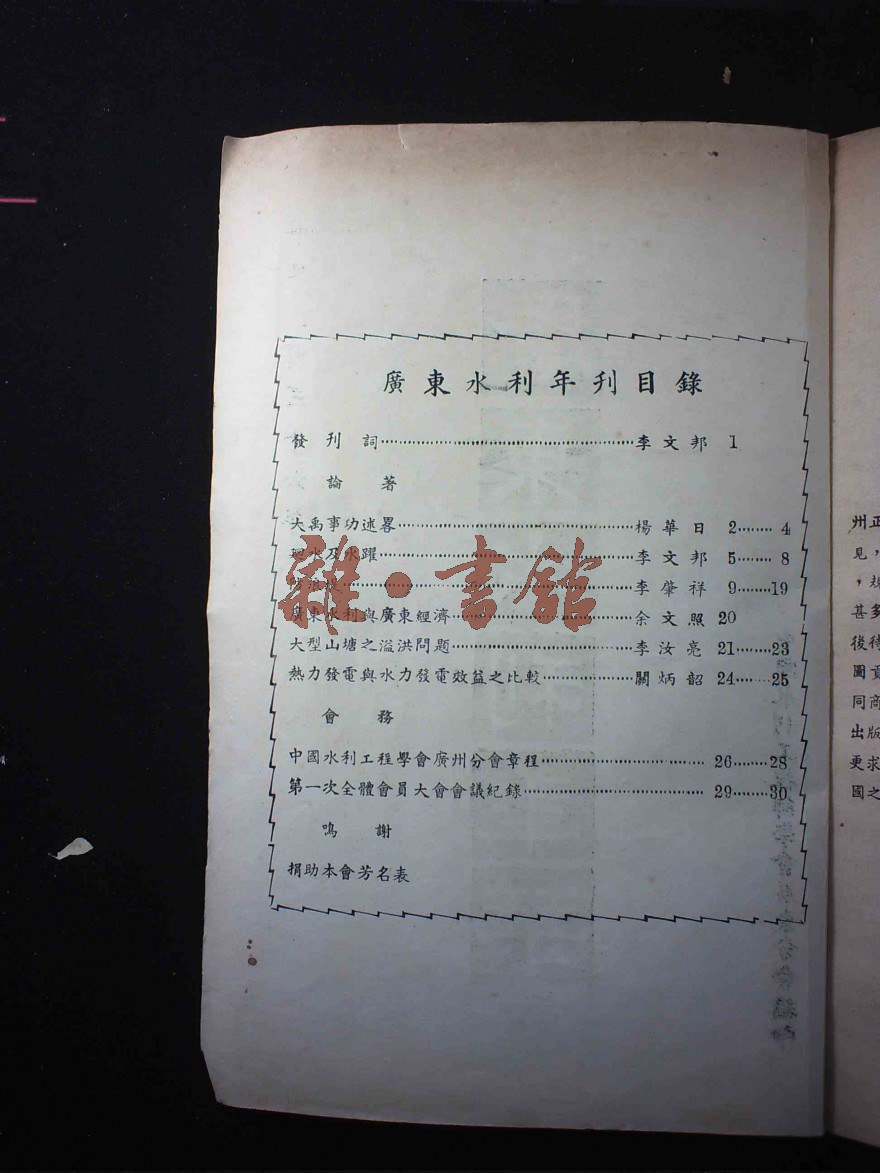 廣東水利年刊目錄
發刊詞……李文邦 1
論著
大禹事功述畧……楊華日 2……4
水及水躍……李文邦 5……8
李肇祥 9……19
廣東水利與廣東經濟……余文照 20
大型山塘之溢洪問題……李汝亮 21……23
熱力發電與水力發電效益之比較……關炳韶 24……25
會務
中國水利工程學會廣州分會章程……26……28
第一次全體會員大會會議紀錄……29……30
鳴謝
捐助本會芳名表
雜·書館
州正
見，
甚多
後待
圖貢
同商
出版
更求
國之